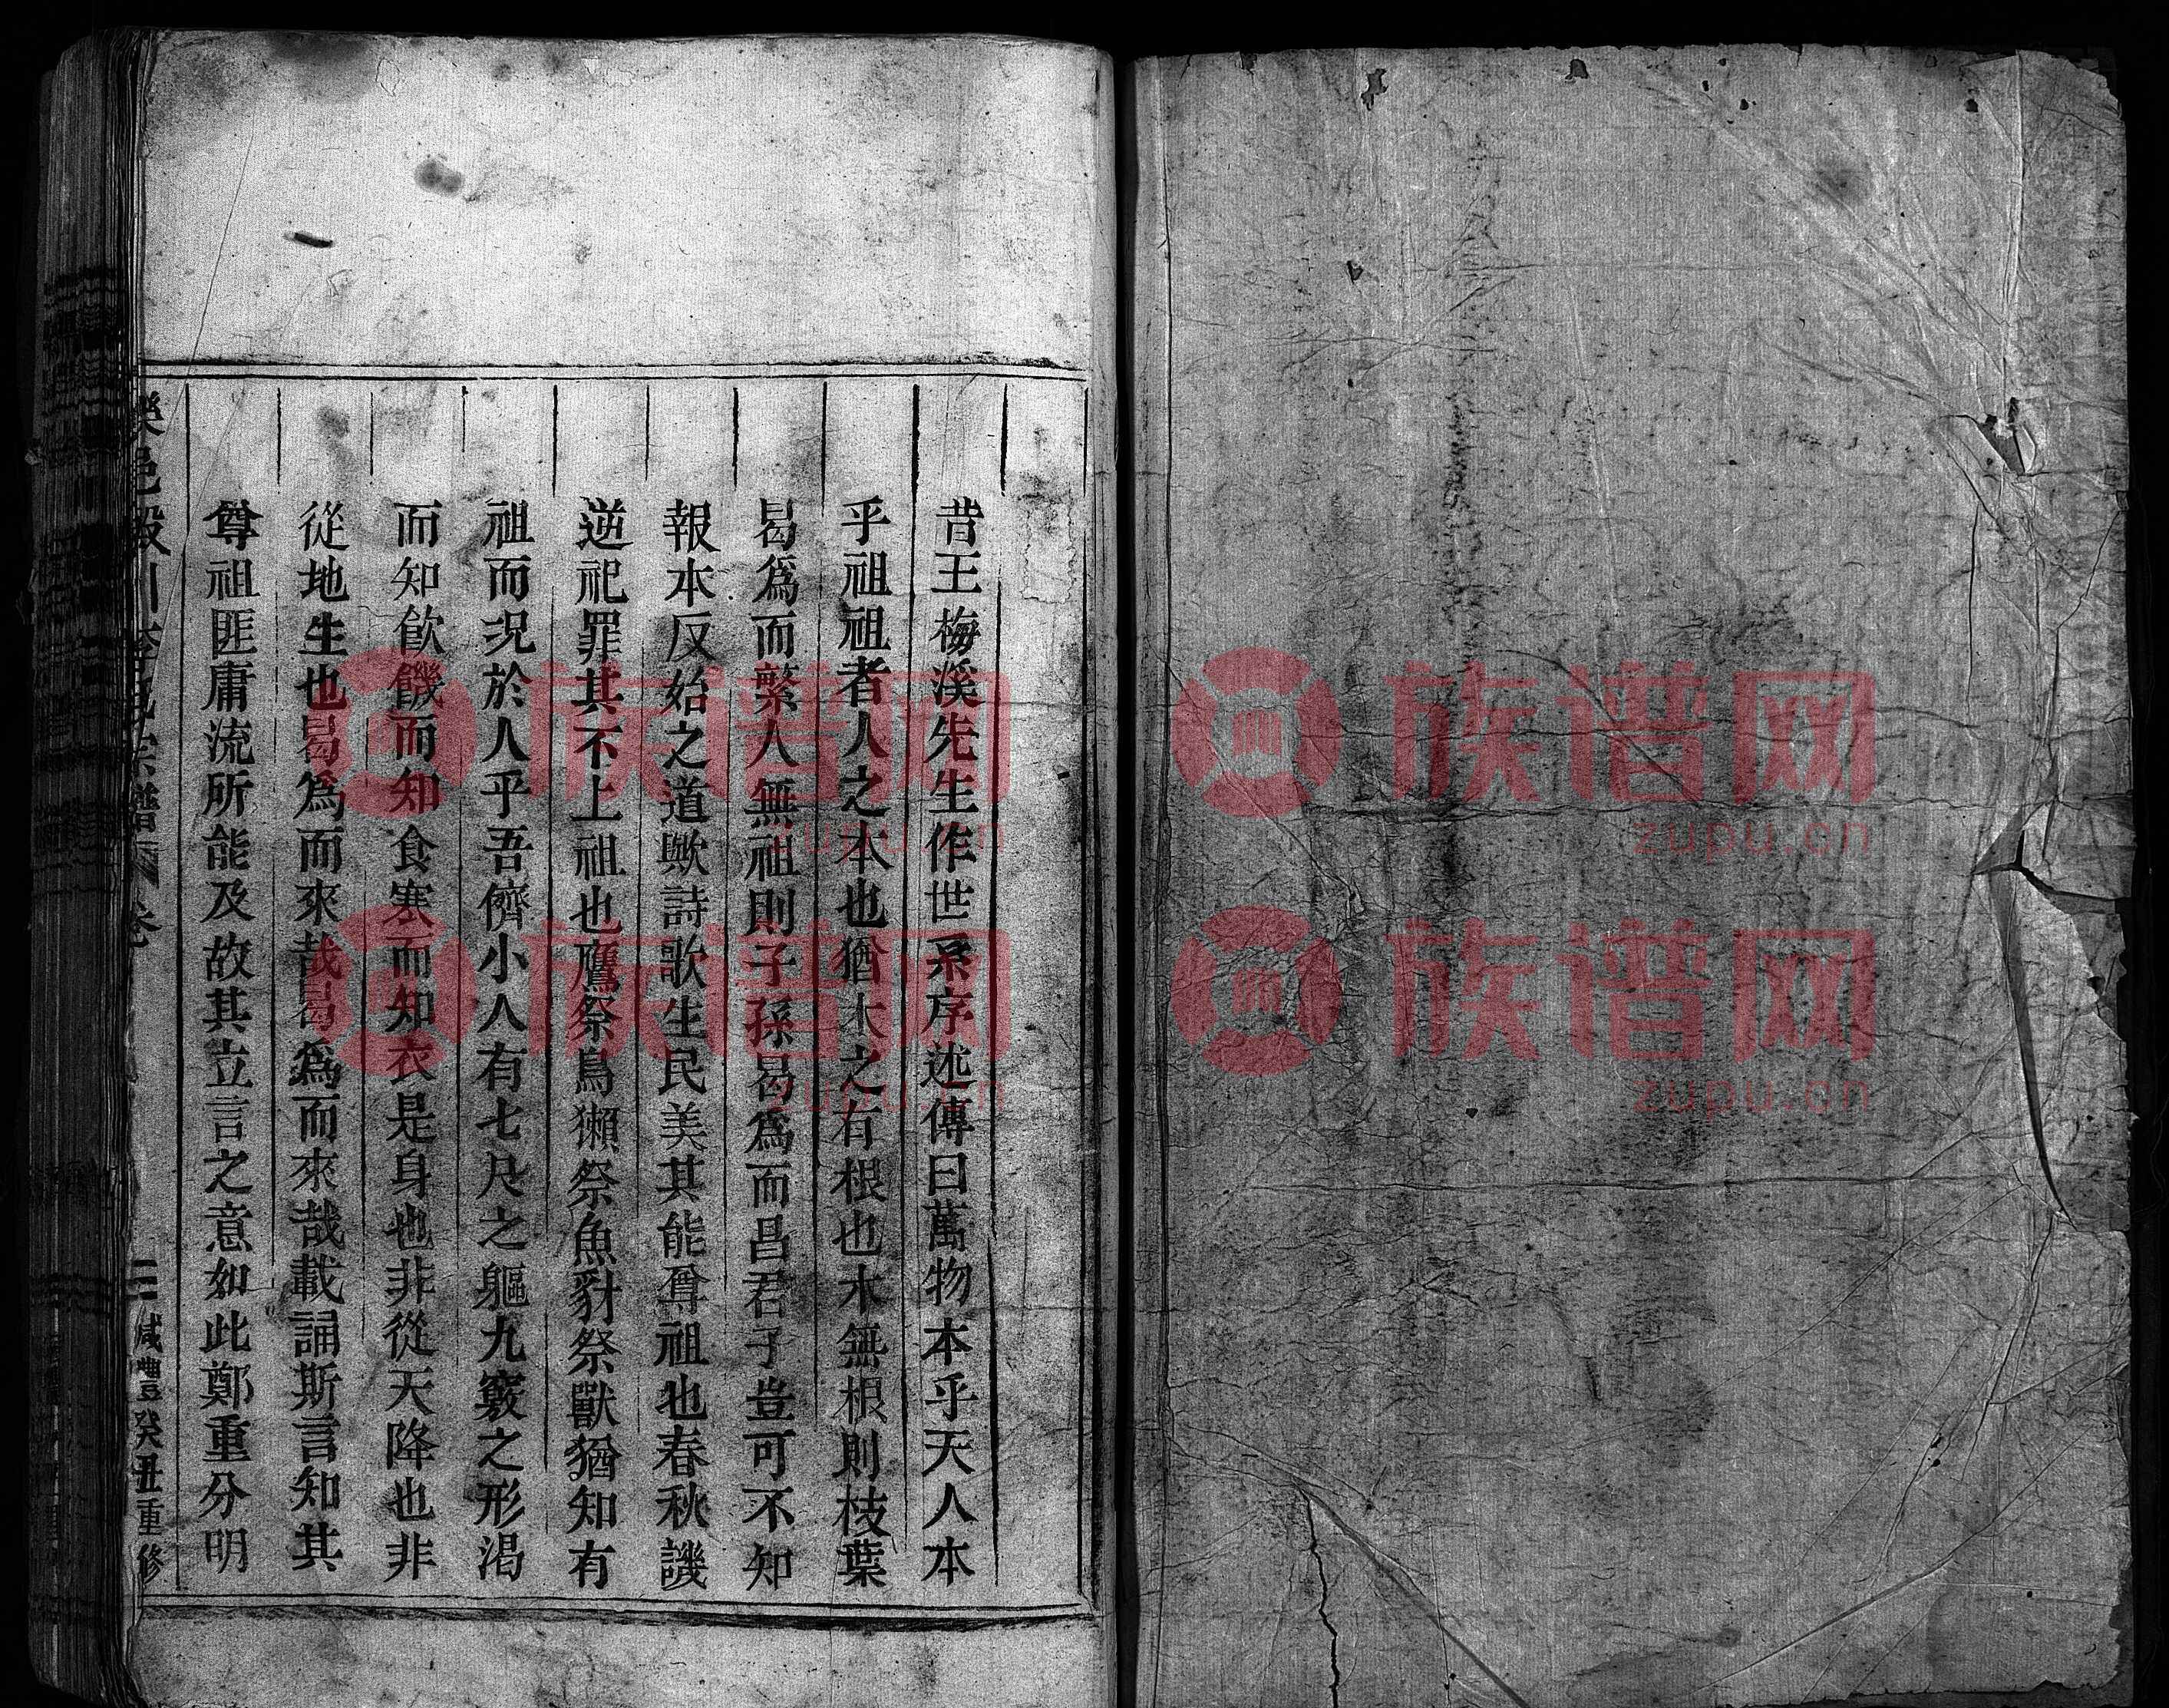 昔王梅溪先生作世系序述傳曰萬物本乎天人本
乎祖祖者人之本也猶木之有根也木無根則枝葉
曷爲而繁人無祖則子孫曷爲而昌君子豈可不知
報本反始之道歟詩歌生民美其能尊祖也春秋譏
逆祀罪其不上祖也鷹祭鳥獺祭魚豺祭獸猶知有
祖而況於人乎吾儕小人有七尺之軀九竅之形渴
而知飲饑而知食寒而知衣是身也非從天降也非
從地生也曷爲而來哉曷爲而來哉載誦斯言知其
尊祖匪庸流所能及故其立言之意如此鄭重分明
宗譜 卷
二 咸豐癸丑重修
族谱网
zupu.cn
族谱网
zupu.cn
族谱网
zupu.cn
族谱网
zupu.cn